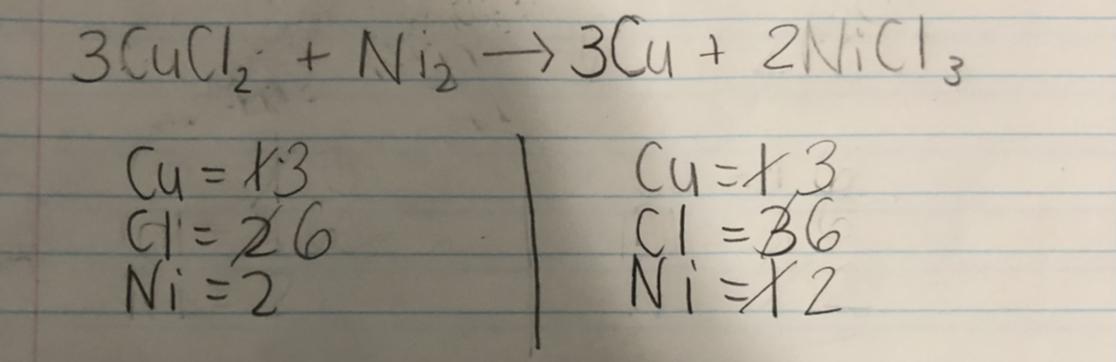 3CuCl₂ + Ni₂ → 3Cu + 2NiCl₃
Cu = 1 3 Cu = 1 3
Cl = 2 6 Cl = 3 6
Ni = 2 Ni = 1 2